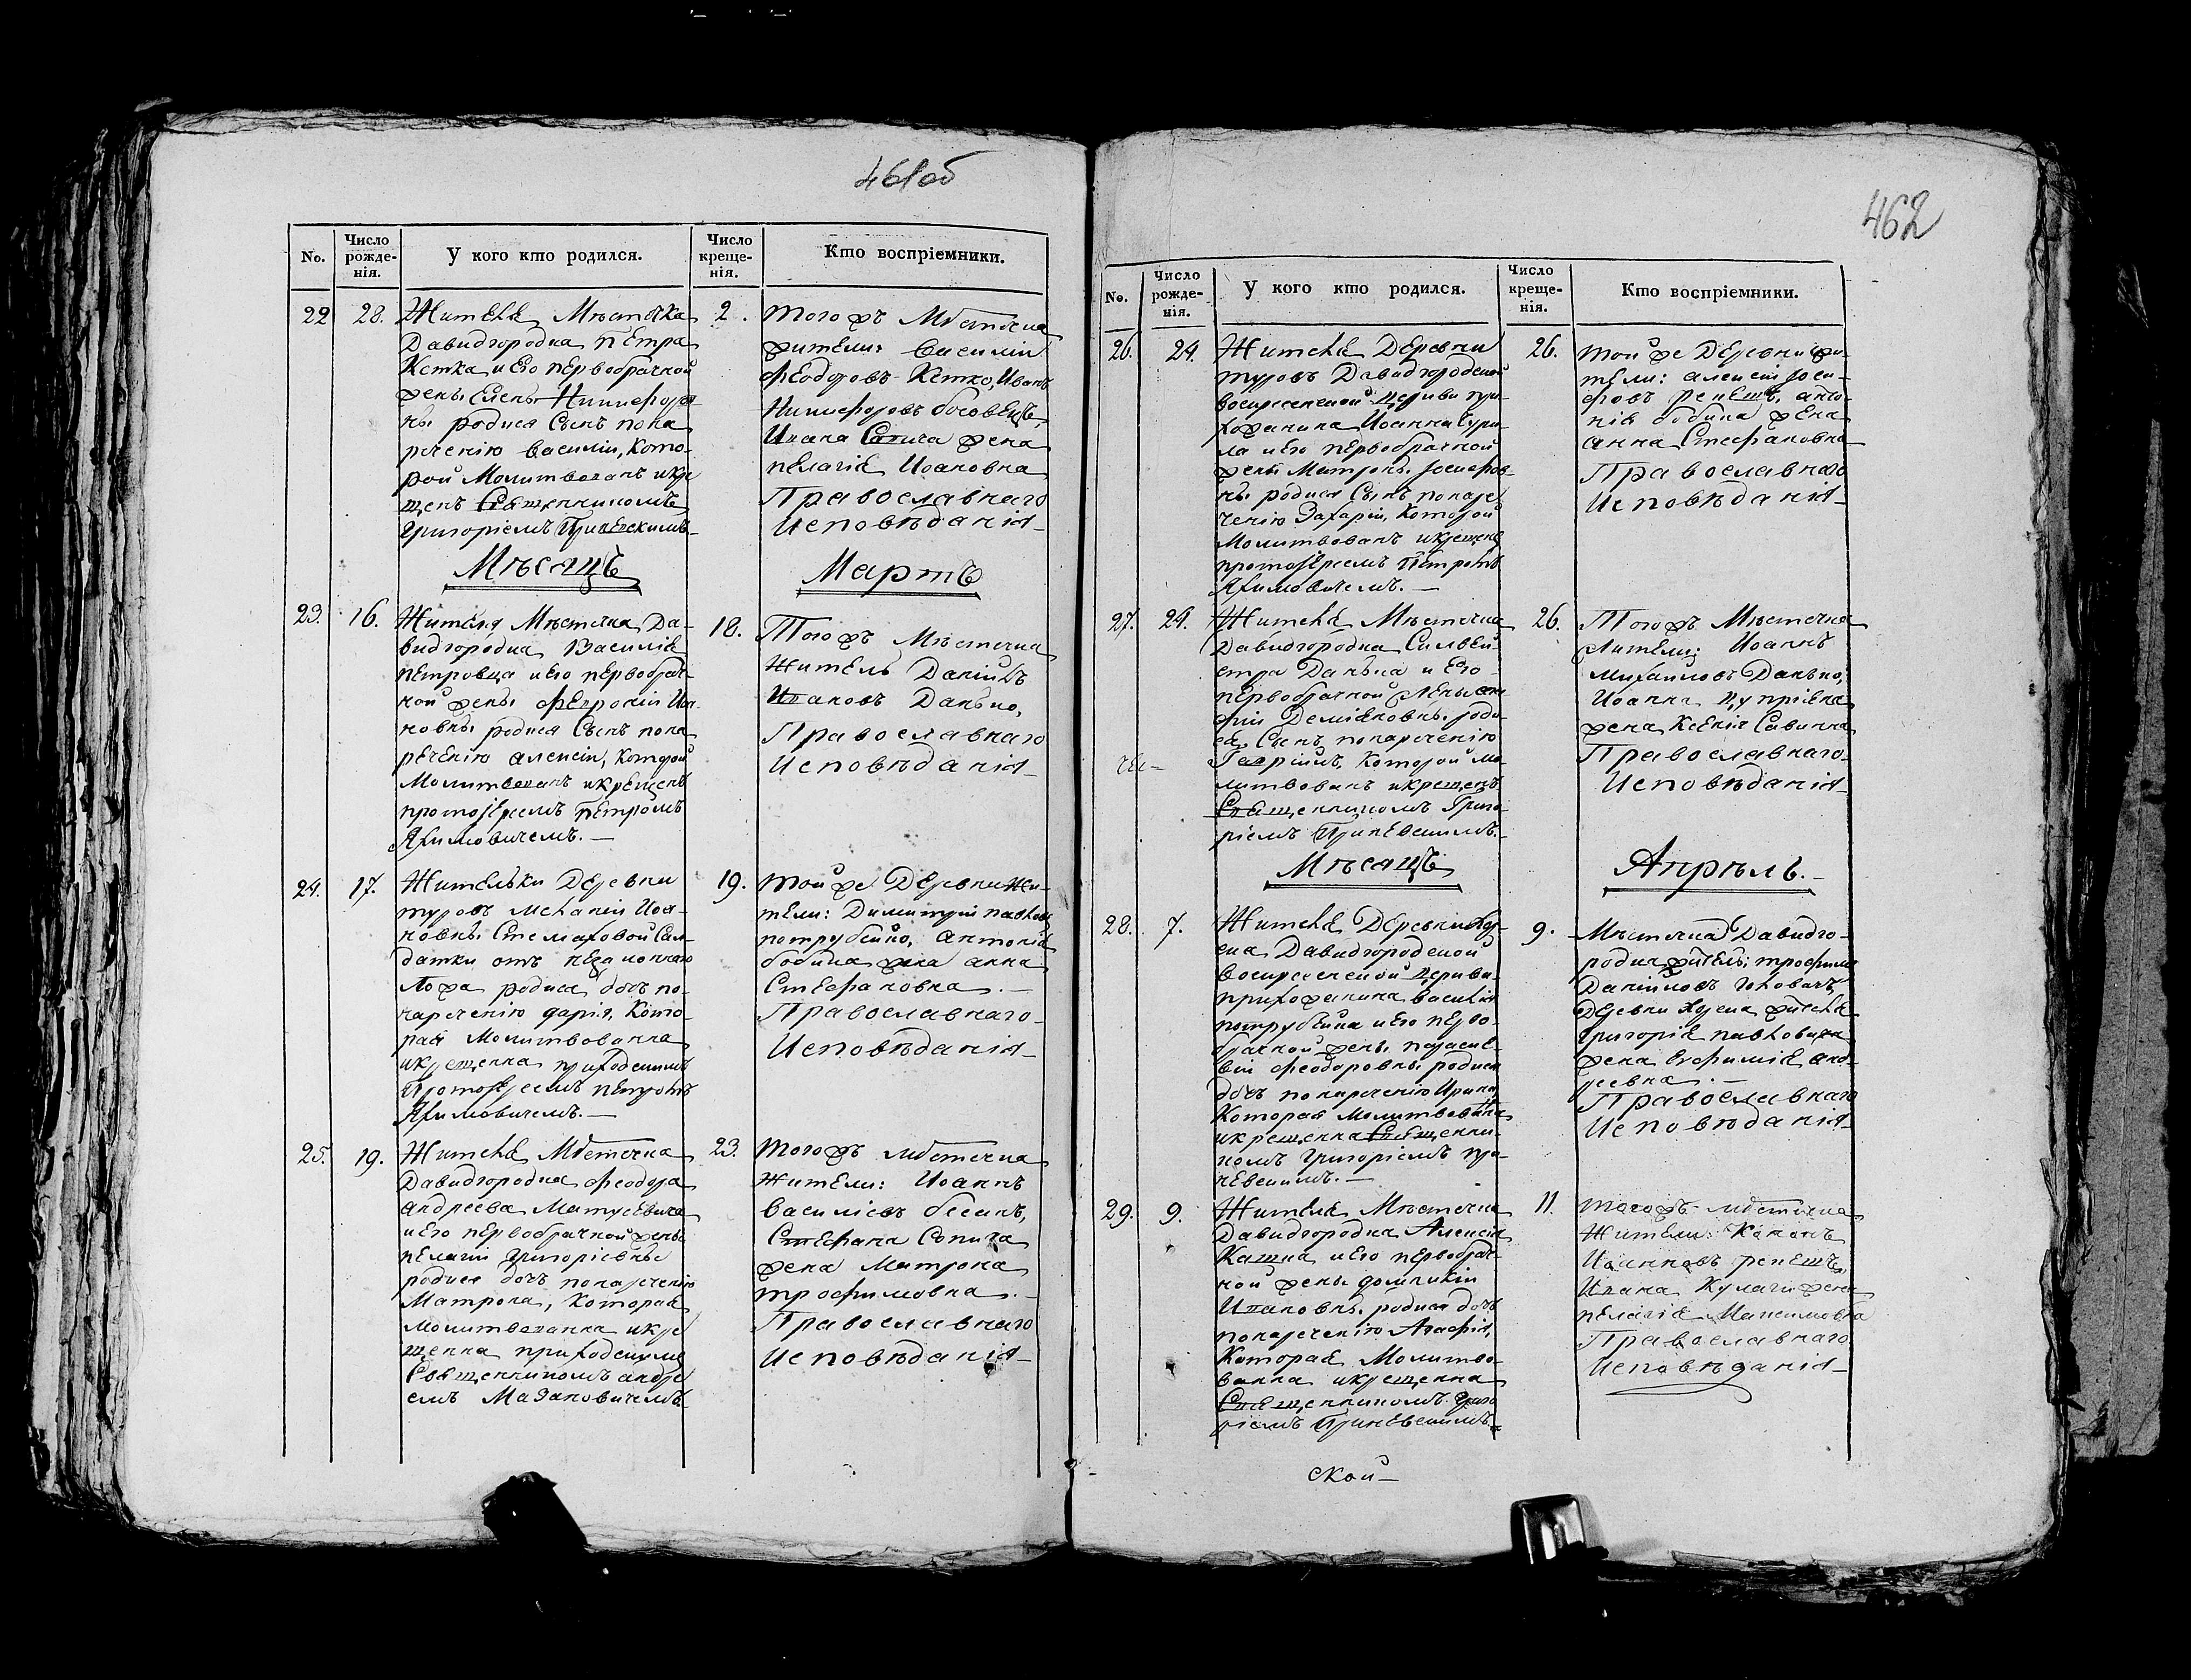 461об
No.
Число рожде-нія.
У кого кто родился.
Число креще-нія.
Кто воспріемники.
22
28.
Жителя Мѣстечка
Давидгородка Петра
Кстка и его первобрачной
жены Елены Никифоров-
ны родися Сынъ пона
речению Василій, кото-
рой Молитвованъ и кре
щенъ Священникомъ
Григоріемъ
2.
Того жъ Мѣстечка
жители: Василій
Феодоровъ Кстко, Иванъ
Никифоровъ
Ивана Сапича жена
Пелагія Ивановна
Православнаго
Исповѣданія
Мѣсяцъ
Мартъ
23.
16.
Жителя Мѣстечка Да-
видгородка Василія
Петровца и его первобрач-
ной жены Февроніи Ива
новны родися Сынъ пона
речению Алексій, которой
Молитвованъ и крещенъ
протоіереемъ Петромъ
Яхимовичемъ.
18.
Того жъ Мѣстечка
Житель Даніилъ
Ивановъ Данько,
Православнаго
Исповѣданія
24.
17.
Жительки Деревни
туровъ Меланіи Ива-
новны Стемаховой Сал-
датки отъ незаконнаго
Ложа родися дочь по-
наречению дарія, Кото-
рая Молитвованна
и крещенна приходскимъ
Протоіереемъ Петромъ
Яхимовичемъ.
19.
той же Деревни жи-
тели: Димитрій Павловъ
потрубейко, Антонія
бобика жена анна
Стефановна.
Православнаго
Исповѣданія
25.
19.
Жителя Мѣстечка
Давидгородка Феодора
Андреева Матусевича
и его первобрачной жены
Пелагіи Григоріевны
родися дочь понаречению
Матрона, Которая
Молитвованна и кре
щенна приходскимъ
Священникомъ андре
емъ Мазановичемъ
23.
Того жъ мѣстечка
Жители: Иоаннъ
Василіевъ бесанъ,
Стефана Сопича
жена Матрона
трофимовна.
Православнаго
Исповѣданія
462
No.
Число рожде-нія.
У кого кто родился.
Число креще-нія.
Кто воспріемники.
26.
24.
Жителя Деревни
туровъ Давидгородской
воскресенской Церкви при
хожанина Иоанна Кури-
ла и его первобрачной
жены Матроны Іосифов-
ны родися Сынъ понаре
чению Захарій, Которой
Молитвованъ и крещенъ
протоіереемъ Петромъ
Яхимовичемъ.
26.
той же Деревни жи-
тели: Алексій Іоси-
фовъ репешъ, анто-
нія бобика жена
анна Стефановна
Православнаго
Исповѣданія
27.
24.
Жителя Мѣстечка
Давидгородка Силвей-
стра Данька и его
первобрачной жены
Деміановны роди-
ся Сынъ понаречению
Гавріилъ, Которой мо
литвованъ и крещенъ
Священникомъ Григо-
ріемъ
26.
Того жъ Мѣстечка
Жители: Иоаннъ
Михайловъ Данько,
Иоанна Купріяна
жена Ксенія Саввина
Православнаго
Исповѣданія
Мѣсяцъ
Апрѣль.
28.
7.
Жителя Деревни
Давидгородской
воскресенской Церкви
прихожанина Василія
потрубейка и его перво-
брачной жены параске-
віи Феодоровны родися
дочь понаречению Ирина
Которая Молитвованна
и крещенна Священни-
комъ Григоріемъ
9.
Мѣстечка Давидго-
родка житель: трофимъ
Даніиловъ
Деревни жителя
Григорія Павловича
жена Евфимія Анд-
реевна.
Православнаго
Исповѣданія
29.
9.
Жителя Мѣстечка
Давидгородка Алексія
Кашка и его первобрач-
ной жены домникіи
Ивановны родися дочь
понаречению Агафія,
Которая Молитво-
ванна и крещенна
Священникомъ Григо
ріемъ
11.
того жъ мѣстечка
Жители: Кононъ
Иоанновъ репешъ,
Ивана Кулаги жена
пелагія Максимовна
Православнаго
Исповѣданія
ской